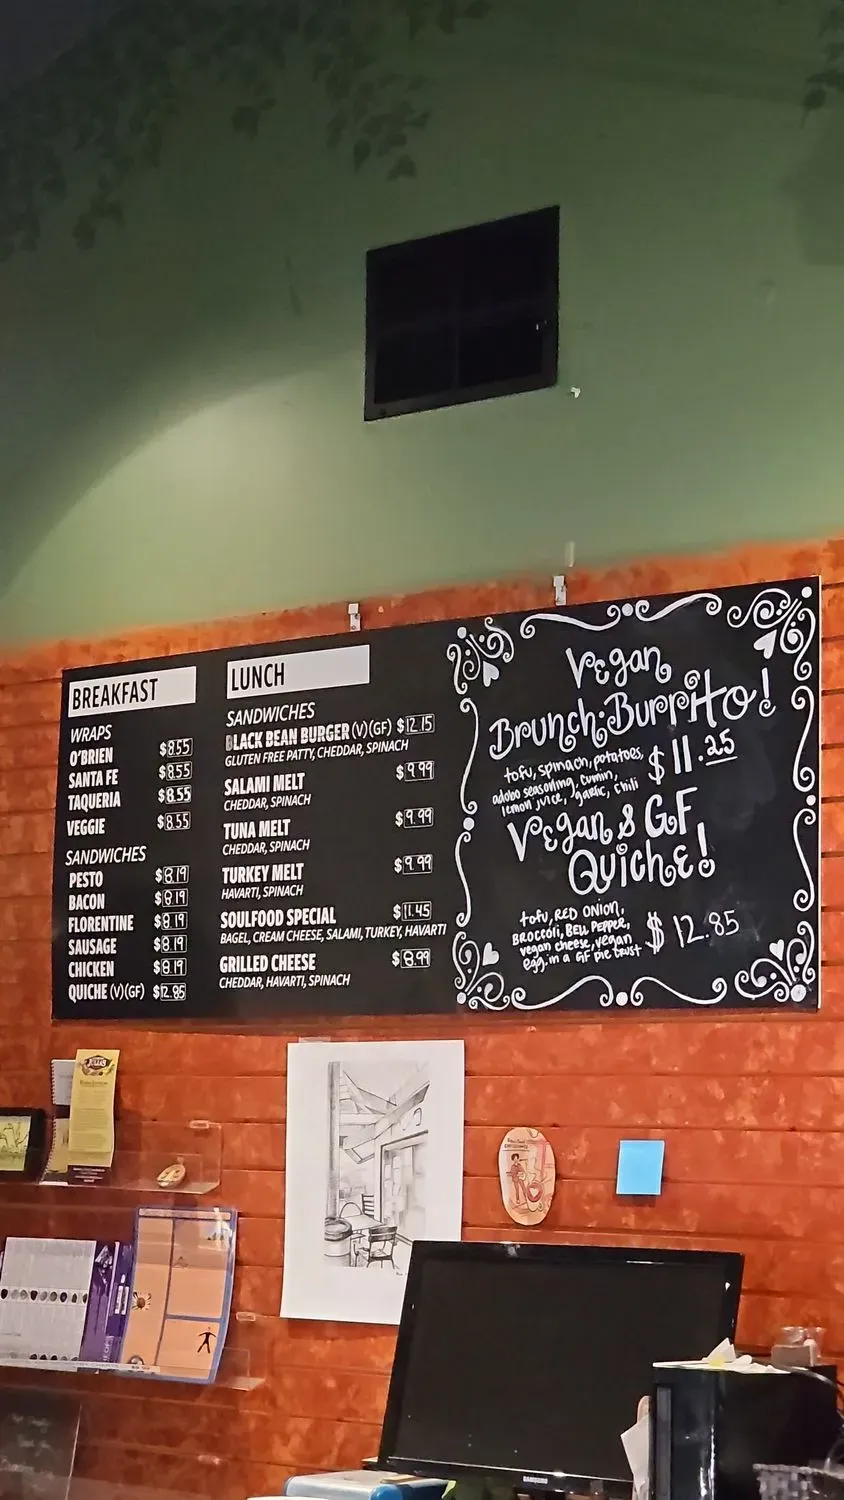 BREAKFAST
WRAPS
O'BRIEN $8.55
SANTA FE $8.55
TAQUERIA $8.55
VEGGIE $8.55
SANDWICHES
PESTO $8.19
BACON $8.19
FLORENTINE $8.19
SAUSAGE $8.19
CHICKEN $8.19
QUICHE (V)(GF) $12.85
LUNCH
SANDWICHES
BLACK BEAN BURGER (V)(GF) $12.15
GLUTEN FREE PATTY, CHEDDAR, SPINACH
SALAMI MELT $9.99
CHEDDAR, SPINACH
TUNA MELT $9.99
CHEDDAR, SPINACH
TURKEY MELT $9.99
HAVARTI, SPINACH
SOULFOOD SPECIAL $11.45
BAGEL, CREAM CHEESE, SALAMI, TURKEY, HAVARTI
GRILLED CHEESE $8.99
CHEDDAR, HAVARTI, SPINACH
Vegan
Brunch Burrito!
tofu, spinach, potatoes,
adobo seasoning, cumin,
lemon juice, garlic, chili
$11.25
Vegan & GF
Quiche!
tofu, RED ONION,
BROCCOLI, BELL PEPPER,
vegan cheese, vegan
egg. in a GF pie crust
$12.85
SAMSUNG